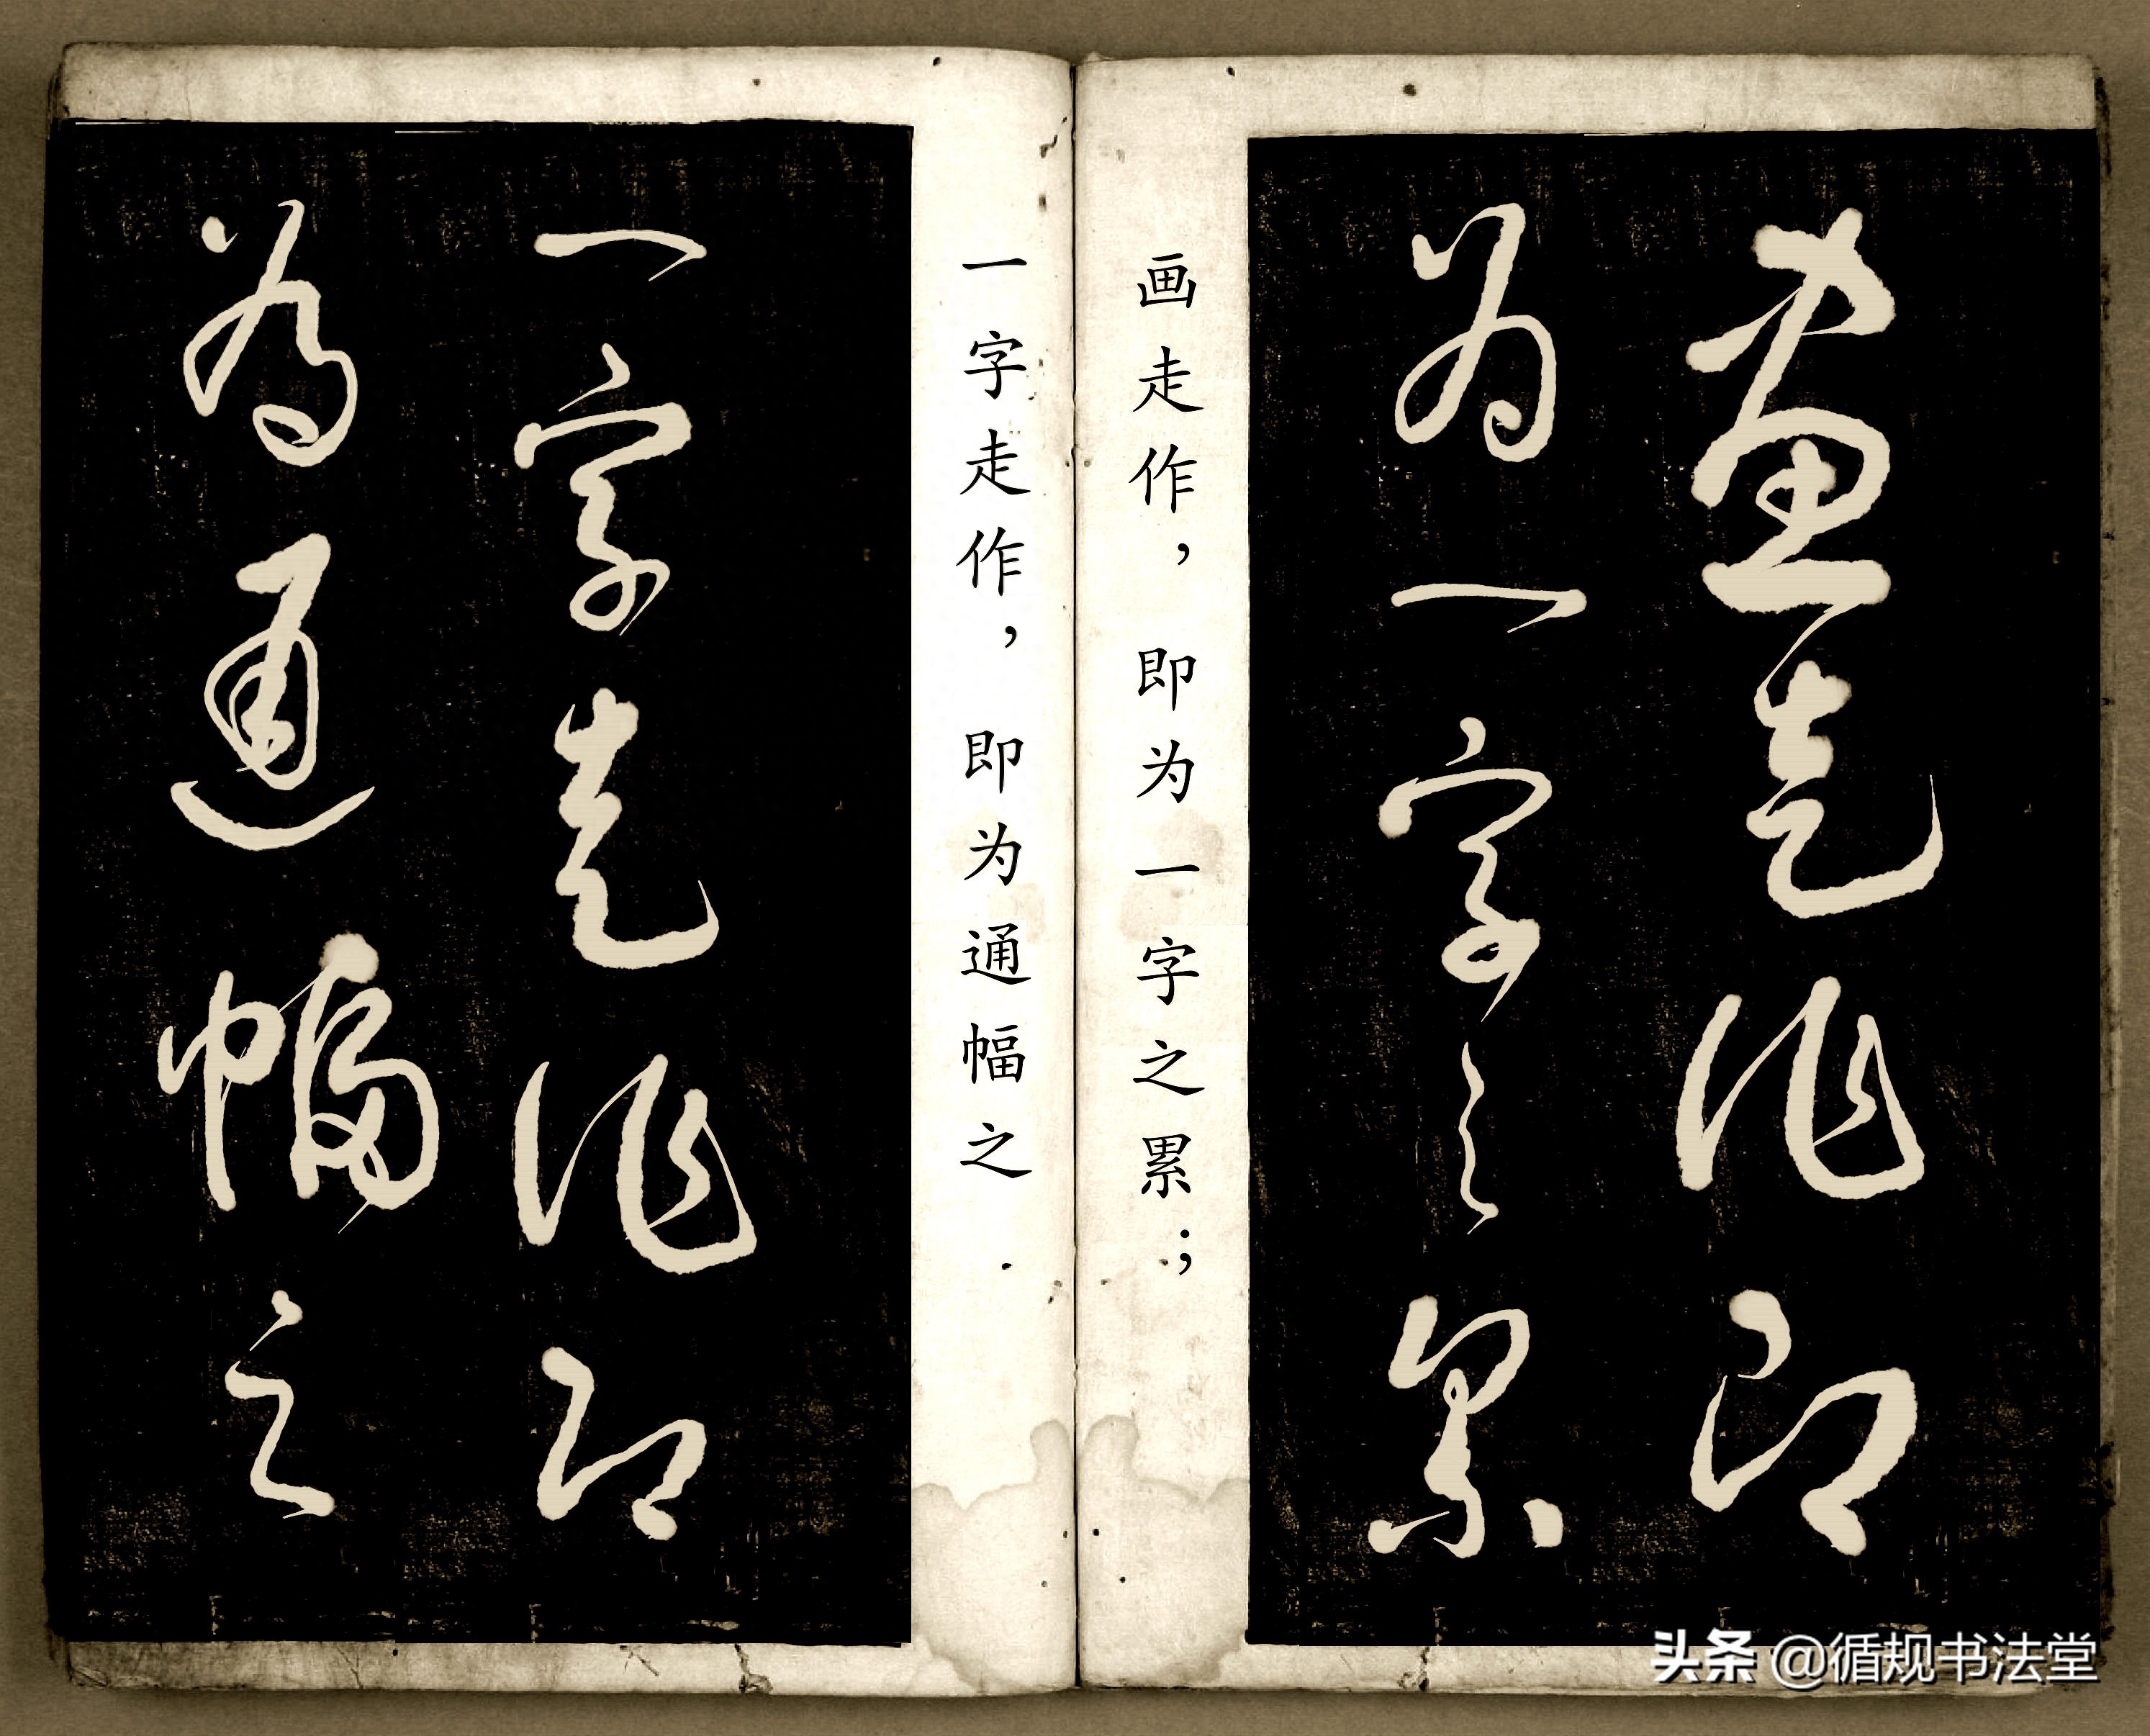 畫走作即
为一字之累
画走作，即为一字之累；
一字走作，即为通幅之
一字走作即
為通幅之
头条 @循规书法堂